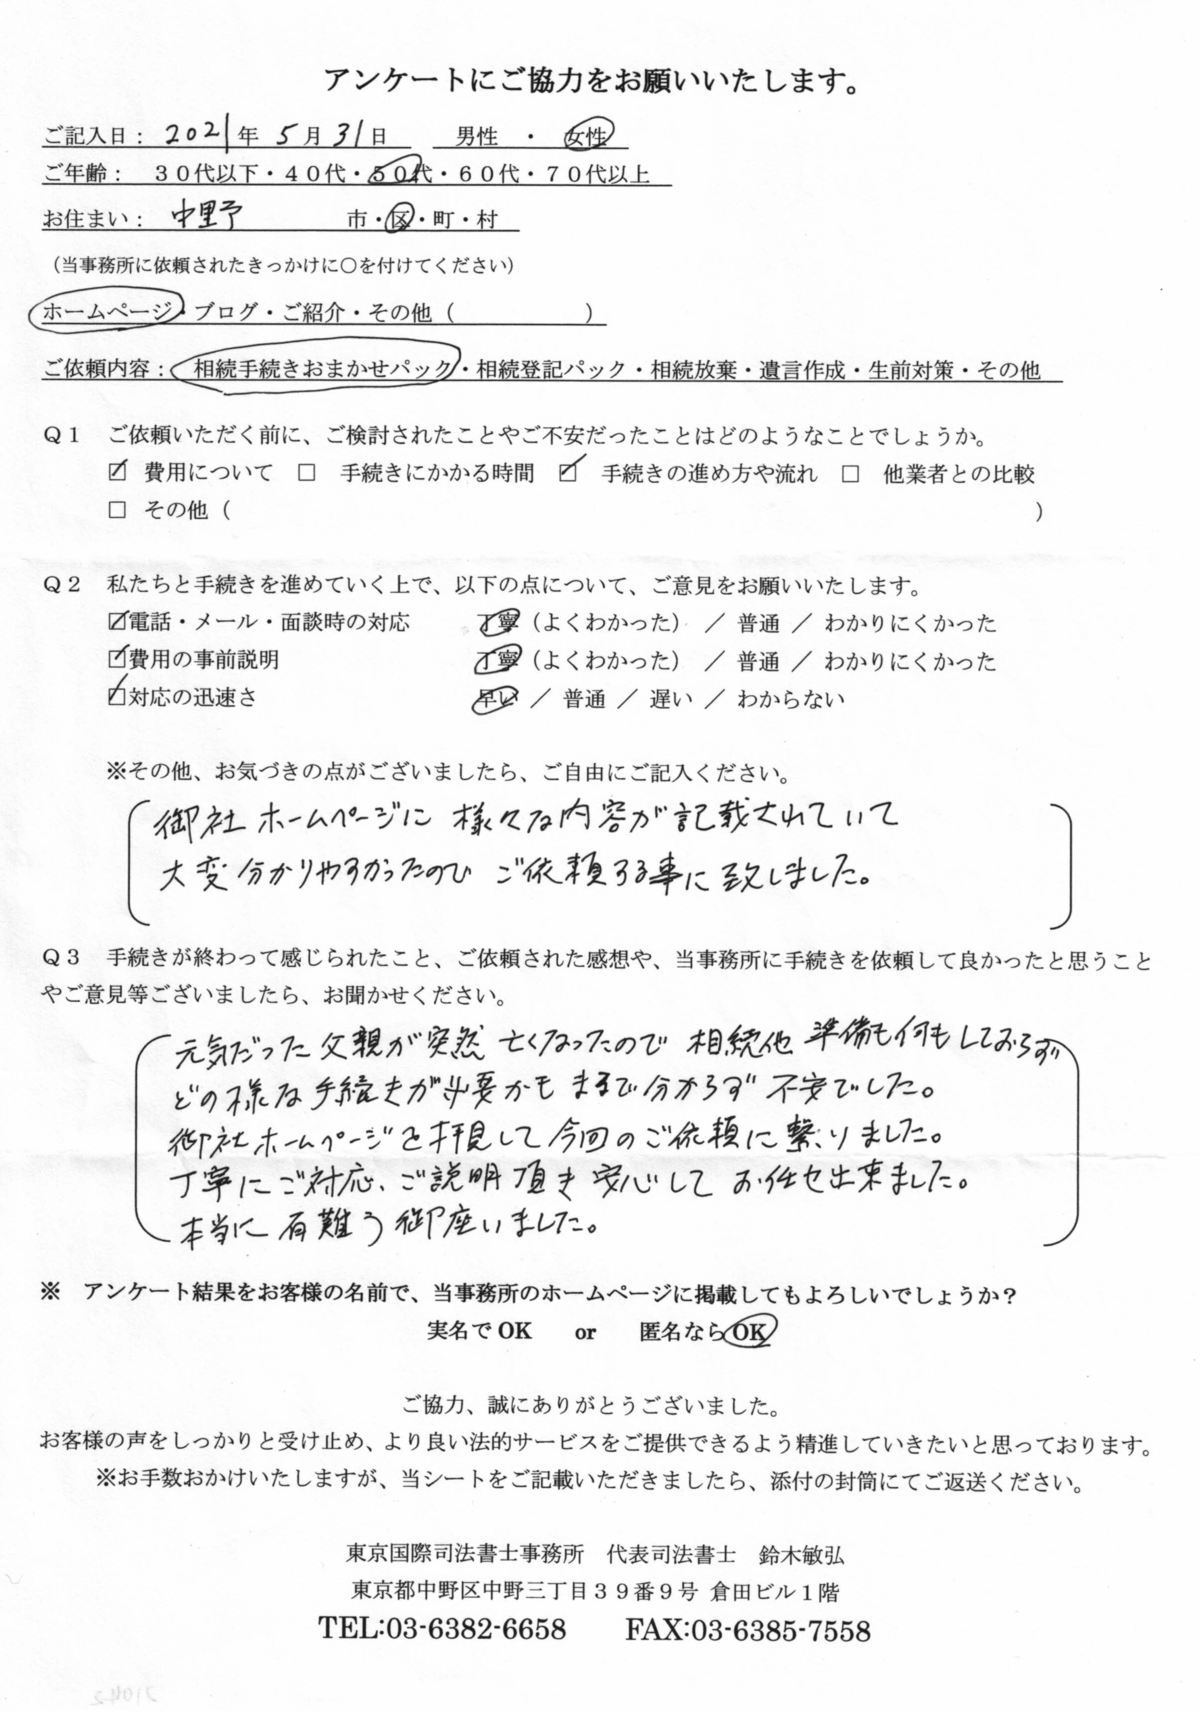 アンケートにご協力をお願いいたします。
ご記入日： 2021年 5月 31日 男性 ・ 女性
ご年齢： ３０代以下・４０代・５０代・６０代・７０代以上
お住まい： 中野 市・区・町・村
（当事務所に依頼されたきっかけに〇を付けてください）
ホームページ・ブログ・ご紹介・その他（ ）
ご依頼内容： 相続手続きおまかせパック・相続登記パック・相続放棄・遺言作成・生前対策・その他
Ｑ１ ご依頼いただく前に、ご検討されたことやご不安だったことはどのようなことでしょうか。
☑ 費用について □ 手続きにかかる時間 ☑ 手続きの進め方や流れ □ 他業者との比較
□ その他（ ）
Ｑ２ 私たちと手続きを進めていく上で、以下の点について、ご意見をお願いいたします。
☑電話・メール・面談時の対応 丁寧（よくわかった） ／ 普通 ／ わかりにくかった
☑費用の事前説明 丁寧（よくわかった） ／ 普通 ／ わかりにくかった
☑対応の迅速さ 早い ／ 普通 ／ 遅い ／ わからない
※その他、お気づきの点がございましたら、ご自由にご記入ください。
御社 ホームページに 様々な内容が記載されていて
大変分かりやすかったので ご依頼する事に致しました。
Ｑ３ 手続きが終わって感じられたこと、ご依頼された感想や、当事務所に手続きを依頼して良かったと思うこと
やご意見等ございましたら、お聞かせください。
元気だった父親が突然 亡くなったので 相続他 準備も何もしておらず
どの様な手続きが必要かも まるで分からず 不安でした。
御社ホームページを拝見して今回のご依頼に繋りました。
丁寧にご対応、ご説明頂き 安心して お任せ出来ました。
本当に 有難う御座いました。
※ アンケート結果をお客様の名前で、当事務所のホームページに掲載してもよろしいでしょうか？
実名でOK or 匿名ならOK
ご協力、誠にありがとうございました。
お客様の声をしっかりと受け止め、より良い法的サービスをご提供できるよう精進していきたいと思っております。
※お手数おかけいたしますが、当シートをご記載いただきましたら、添付の封筒にてご返送ください。
東京国際司法書士事務所 代表司法書士 鈴木敏弘
東京都中野区中野三丁目３９番９号 倉田ビル１階
TEL:03-6382-6658 FAX:03-6385-7558